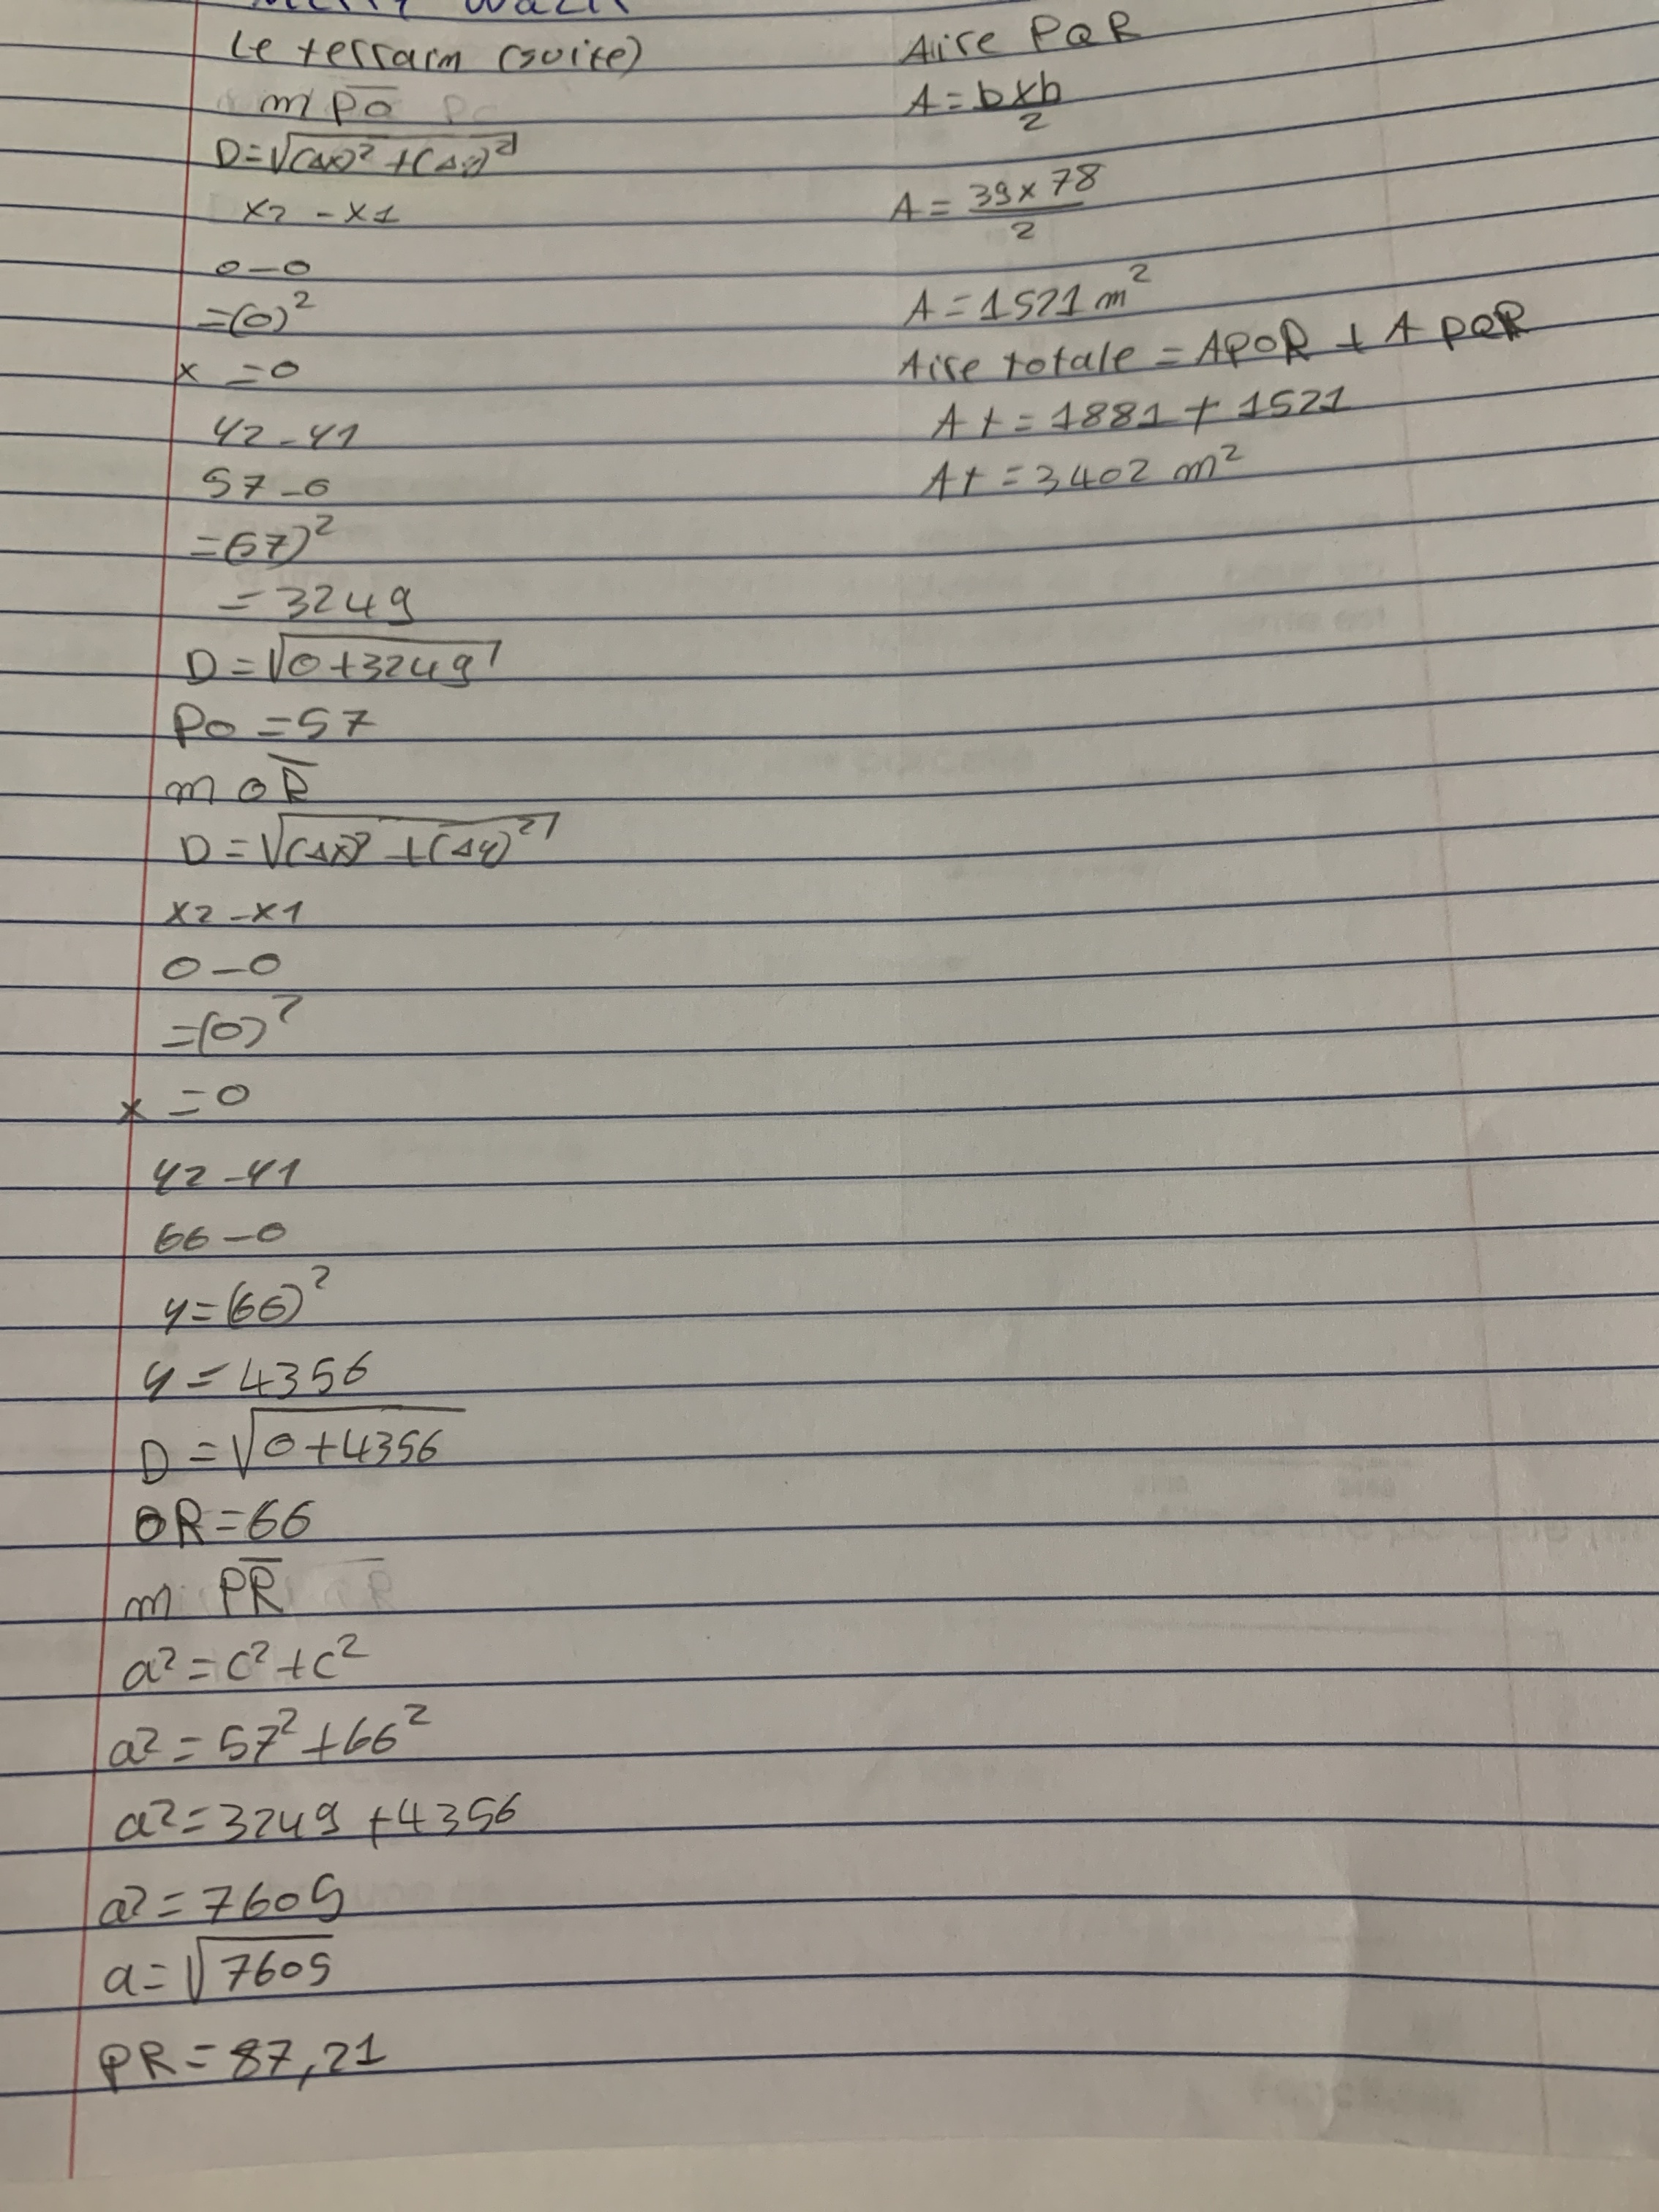 Le terrain (suite)
m P̅O̅
D=√(Δx)² +(Δy)²
x2 - x1
0-0
=(0)²
x =0
y2-y1
57-0
=(57)²
=3249
D=√0+3249
PO=57
m O̅R̅
D=√(Δx)² +(Δy)²
x2-x1
0-0
=(0)²
x =0
y2-y1
66-0
y=(66)²
y=4356
D=√0+4356
OR=66
m P̅R̅
a²=c²+c²
a²=57²+66²
a²=3249+4356
a²=7605
a=√7605
PR=87,21
Aire PQR
A=bxh/2
A=39x78/2
A=1521 m²
Aire totale=APOR + A PQR
At=1881+1521
At=3402 m²